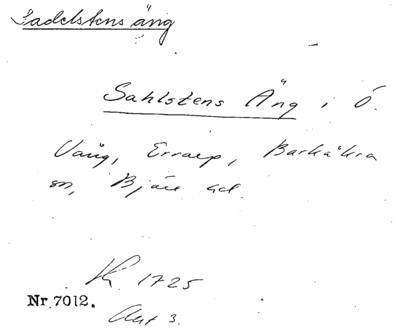 Sadelstens äng
Sahlstens Äng i Ö.
Vång, Errarp, Barkåkra
sn, Bjäre hd.
K. 1725
Nr 7012.
Akt 3.